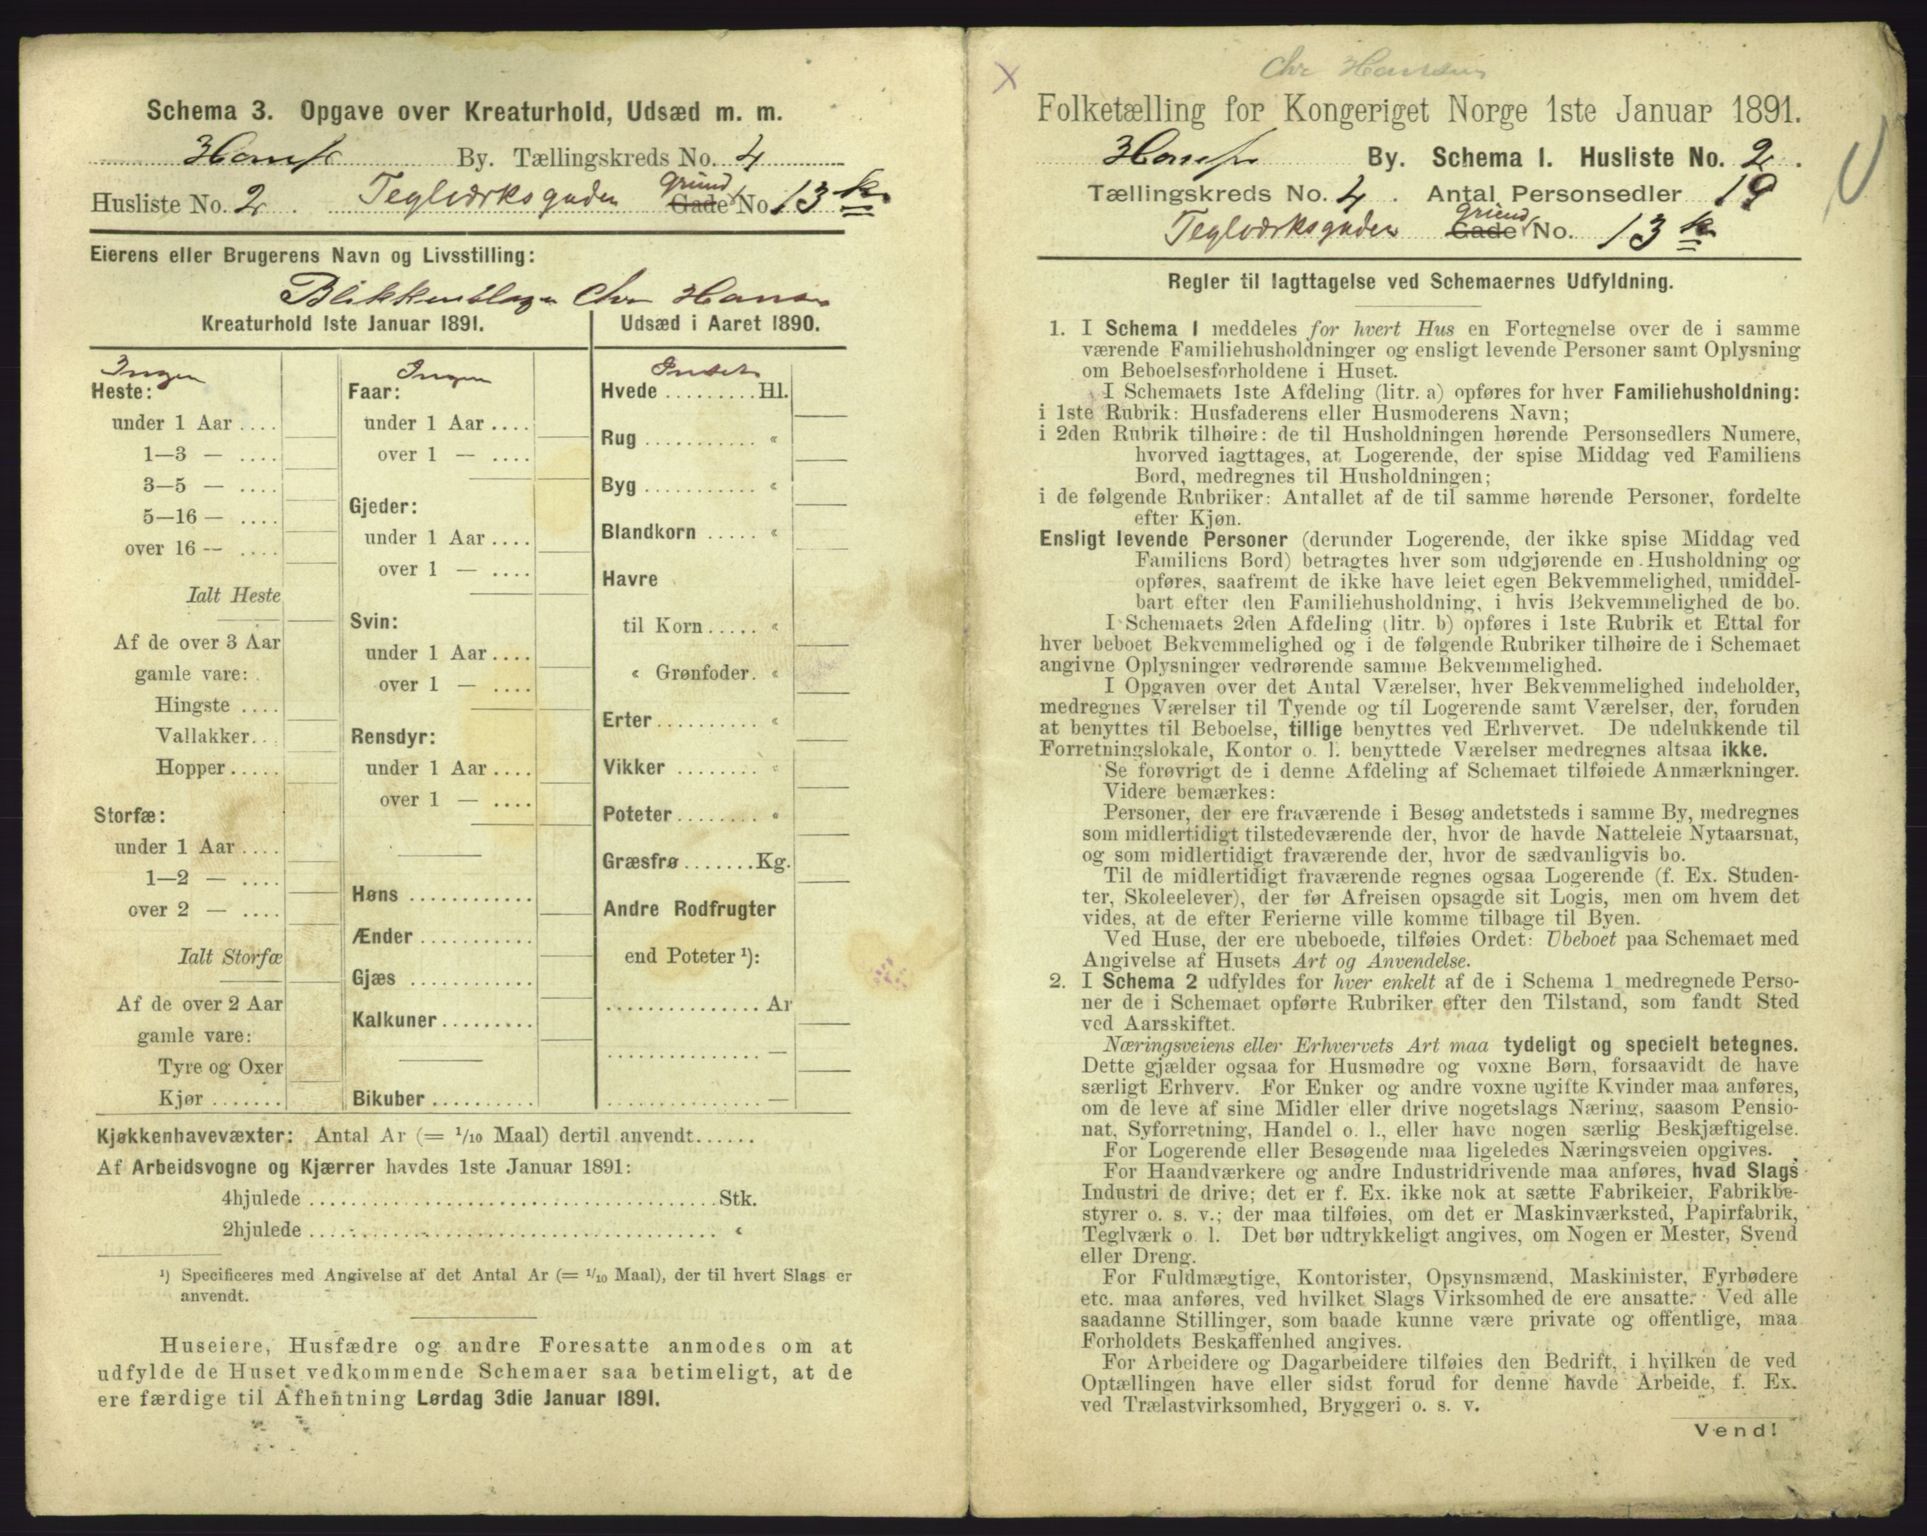 Schema 3. Opgave over Kreaturhold, Udsæd m. m.
By. Tællingskreds No. 4
Husliste No. 2. Teglværksgaden Grund Gade No. 13 k
Eierens eller Brugerens Navn og Livsstilling:
Blikkenslager Chr Hansen
Kreaturhold 1ste Januar 1891.
Ingen
Heste:
under 1 Aar ....
1—3 — ....
3—5 — ....
5—16 — ....
over 16 — ....
Ialt Heste
Af de over 3 Aar
gamle vare:
Hingste ....
Vallakker...
Hopper.....
Storfæ:
under 1 Aar ....
1—2 — ....
over 2 — ....
Ialt Storfæ
Af de over 2 Aar
gamle vare:
Tyre og Oxer
Kjør .......
Ingen
Faar:
under 1 Aar ....
over 1 — ....
Gjeder:
under 1 Aar ....
over 1 — ....
Svin:
under 1 Aar ....
over 1 — ....
Rensdyr:
under 1 Aar ....
over 1 — ....
Høns ............
Ænder ...........
Gjæs ............
Kalkuner .........
Bikuber ..........
Udsæd i Aaret 1890.
Hvede ......... Hl.
Rug ........... «
Byg ........... «
Blandkorn ..... «
Havre
til Korn ..... «
« Grønfoder. «
Erter ......... «
Vikker ........ «
Poteter ........ «
Græsfrø ....... Kg.
Andre Rodfrugter
end Poteter ¹):
............... Ar
............... —
............... —
Kjøkkenhavevæxter: Antal Ar (= 1/10 Maal) dertil anvendt......
Af Arbeidsvogne og Kjærrer havdes 1ste Januar 1891:
4hjulede ........................................ Stk.
2hjulede ........................................ «
¹) Specificeres med Angivelse af det Antal Ar (= 1/10 Maal), der til hvert Slags er
anvendt.
Huseiere, Husfædre og andre Foresatte anmodes om at
udfylde de Huset vedkommende Schemaer saa betimeligt, at de
ere færdige til Afhentning Lørdag 3die Januar 1891.
Chr Hansen
Folketælling for Kongeriget Norge 1ste Januar 1891.
By. Schema 1. Husliste No. 2.
Tællingskreds No. 4. Antal Personsedler 19
Teglværksgaden Grund Gade No. 13 k
Regler til Iagttagelse ved Schemaernes Udfyldning.
1. I Schema 1 meddeles for hvert Hus en Fortegnelse over de i samme
værende Familiehusholdninger og ensligt levende Personer samt Oplysning
om Beboelsesforholdene i Huset.
I Schemaets 1ste Afdeling (litr. a) opføres for hver Familiehusholdning:
i 1ste Rubrik: Husfaderens eller Husmoderens Navn;
i 2den Rubrik tilhøire: de til Husholdningen hørende Personsedlers Numere,
hvorved iagttages, at Logerende, der spise Middag ved Familiens
Bord, medregnes til Husholdningen;
i de følgende Rubriker: Antallet af de til samme hørende Personer, fordelte
efter Kjøn.
Ensligt levende Personer (derunder Logerende, der ikke spise Middag ved
Familiens Bord) betragtes hver som udgjørende en Husholdning og
opføres, saafremt de ikke have leiet egen Bekvemmelighed, umiddel-
bart efter den Familiehusholdning, i hvis Bekvemmelighed de bo.
I Schemaets 2den Afdeling (litr. b) opføres i 1ste Rubrik et Ettal for
hver beboet Bekvemmelighed og i de følgende Rubriker tilhøire de i Schemaet
angivne Oplysninger vedrørende samme Bekvemmelighed.
I Opgaven over det Antal Værelser, hver Bekvemmelighed indeholder,
medregnes Værelser til Tyende og til Logerende samt Værelser, der, foruden
at benyttes til Beboelse, tillige benyttes ved Erhvervet. De udelukkende til
Forretningslokale, Kontor o. l. benyttede Værelser medregnes altsaa ikke.
Se forøvrigt de i denne Afdeling af Schemaet tilføiede Anmærkninger.
Videre bemærkes:
Personer, der ere fraværende i Besøg andetsteds i samme By, medregnes
som midlertidigt tilstedeværende der, hvor de havde Natteleie Nytaarsnat,
og som midlertidigt fraværende der, hvor de sædvanligvis bo.
Til de midlertidigt fraværende regnes ogsaa Logerende (f. Ex. Studen-
ter, Skoleelever), der før Afreisen opsagde sit Logis, men om hvem det
vides, at de efter Ferierne ville komme tilbage til Byen.
Ved Huse, der ere ubeboede, tilføies Ordet: Ubeboet paa Schemaet med
Angivelse af Husets Art og Anvendelse.
2. I Schema 2 udfyldes for hver enkelt af de i Schema 1 medregnede Perso-
ner de i Schemaet opførte Rubriker efter den Tilstand, som fandt Sted
ved Aarsskiftet.
Næringsveiens eller Erhvervets Art maa tydeligt og specielt betegnes.
Dette gjælder ogsaa for Husmødre og voxne Børn, forsaavidt de have
særligt Erhverv. For Enker og andre voxne ugifte Kvinder maa anføres,
om de leve af sine Midler eller drive nogetslags Næring, saasom Pensio-
nat, Syforretning, Handel o. l., eller have nogen særlig Beskjæftigelse.
For Logerende eller Besøgende maa ligeledes Næringsveien opgives.
For Haandværkere og andre Industridrivende maa anføres, hvad Slags
Industri de drive; det er f. Ex. ikke nok at sætte Fabrikeier, Fabrikbe-
styrer o. s. v.; der maa tilføies, om det er Maskinværksted, Papirfabrik,
Teglværk o. l. Det bør udtrykkeligt angives, om Nogen er Mester, Svend
eller Dreng.
For Fuldmægtige, Kontorister, Opsynsmænd, Maskinister, Fyrbødere
etc. maa anføres, ved hvilket Slags Virksomhed de ere ansatte. Ved alle
saadanne Stillinger, som baade kunne være private og offentlige, maa
Forholdets Beskaffenhed angives.
For Arbeidere og Dagarbeidere tilføies den Bedrift, i hvilken de ved
Optællingen have eller sidst forud for denne havde Arbeide, f. Ex.
ved Trælastvirksomhed, Bryggeri o. s. v.
Vend!